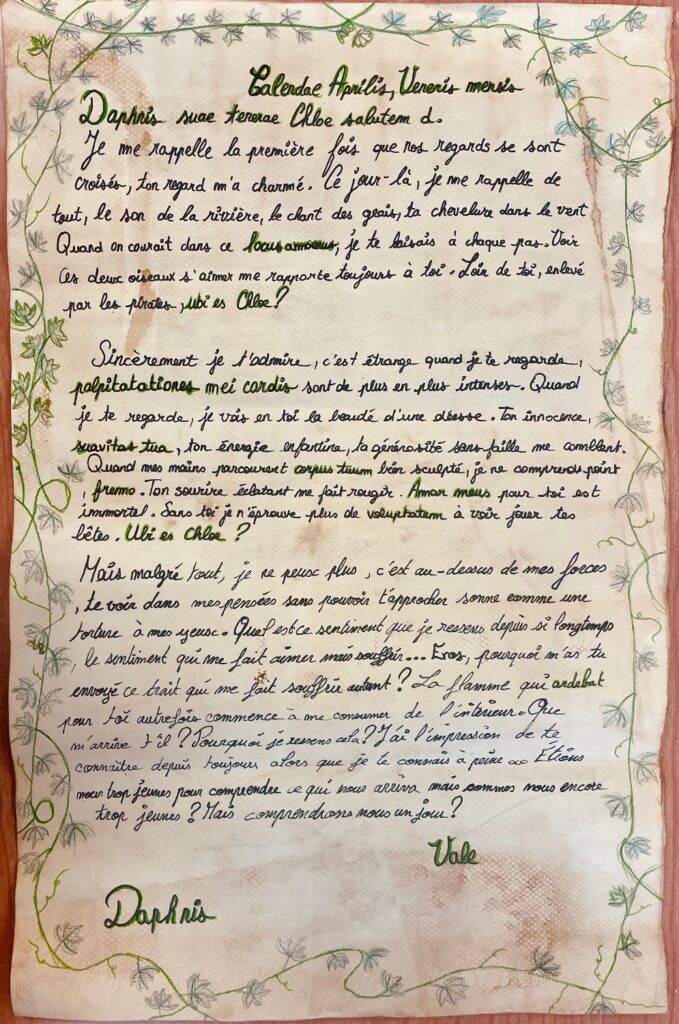 Calendae Aprilis, Veneris mensis
Daphnis suae tenerae Chloe salutem d.
Je me rappelle la première fois que nos regards se sont
croisés, ton regard m'a charmé. Ce jour-là, je me rappelle de
tout, le son de la rivière, le chant des geais, ta chevelure dans le vent
Quand on courait dans ce locus amoenus, je te baisais à chaque pas. Voir
ces deux oiseaux s'aimer me rapporte toujours à toi. Loin de toi, enlevé
par les pirates, ubi es Chloe?
Sincèrement je t'admire, c'est étrange quand je te regarde,
palpitatationes mei cordis sont de plus en plus intenses. Quand
je te regarde, je vois en toi la beauté d'une déesse. Ton innocence,
suavitas tua, ton énergie enfantine, ta générosité sans faille me comblent.
Quand mes mains parcourent corpus tuum bien sculpté, je ne comprends point
, fremo. Ton sourire éclatant me fait rougir. Amor meus pour toi est
immortel. Sans toi je n'éprouve plus de voluptatem à voir jouer tes
bêtes. Ubi es Chloe ?
Mais malgré tout, je ne peux plus, c'est au-dessus de mes forces
, te voir dans mes pensées sans pouvoir t'approcher sonne comme une
torture à mes yeux. Quel est ce sentiment que je ressens depuis si longtemps
, le sentiment qui me fait aimer mais souffrir... Eros, pourquoi m'as tu
envoyé ce trait qui me fait souffrir autant ? La flamme qui ardebat
pour toi autrefois commence à me consumer de l'intérieur. Que
m'arrive t'il ? Pourquoi je ressens cela ? J'ai l'impression de te
connaître depuis toujours alors que je te connais à peine ... Étions
nous trop jeunes pour comprendre ce qui nous arriva mais sommes nous encore
trop jeunes ? Mais comprendrons nous un jour ?
Vale
Daphnis